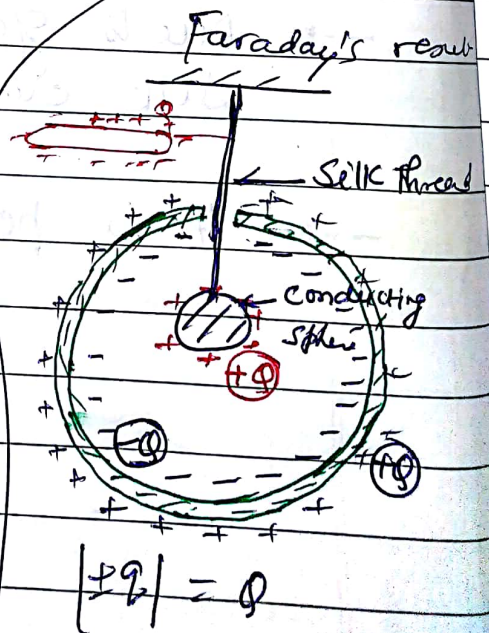 Faraday's result
Silk thread
Conducting
sphere
+Q
-Q
+Q
|±q| = Q